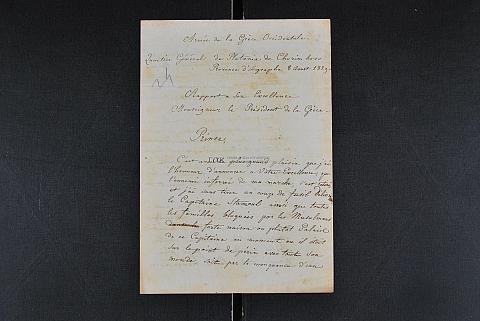 Armée de la Grèce Occidentale.
Quartier Général de Platania de
Province d'Agrapha 8 Août 182
Rapport a Son Excellence
Monseigneur le Président de la Grèce.
Prince,
C'est a plaisir que j'ai
l'honneur d'annoncer a Votre Excellence, que
l'ennemi informé de ma marche, s'est
et j'ai sans tirer un coup de fusil
le Capitaine Stamouli ainsi que toutes
les familles bloquées par les Musulmans
forte maison ou plutôt Palais
de ce Capitaine au moment ou il était
sur le point de périr avec tout son
monde, soit par le manquance d'eau